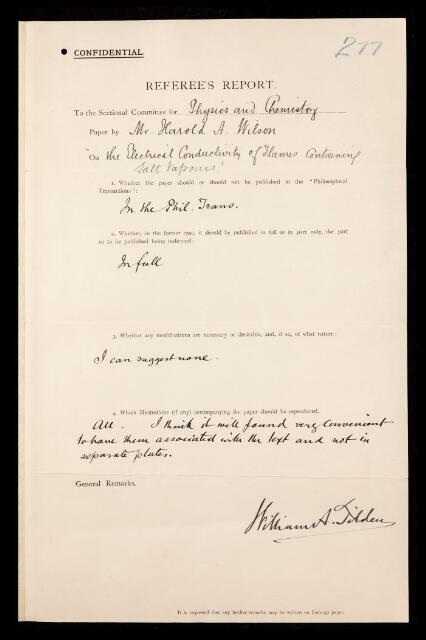 CONFIDENTIAL.
277
REFEREE'S REPORT.
To the Sectional Committee for Physics and Chemistry
Paper by Mr. Harold A. Wilson
"On the Electrical Conductivity of Flames Containing
Salt Vapours."
1. Whether the paper should or should not be published in the "Philosophical
Transactions":
In the Phil. Trans.
2. Whether, in the former case, it should be published in full or in part only, the part
so to be published being indicated:
In full
3. Whether any modifications are necessary or desirable, and, if so, of what nature:
I can suggest none.
4. Which illustrations (if any) accompanying the paper should be reproduced.
All. I think it will found very convenient
to have them associated with the text and not in
separate plates.
General Remarks.
William A. Tilden
It is requested that any further remarks may be written on foolscap paper.